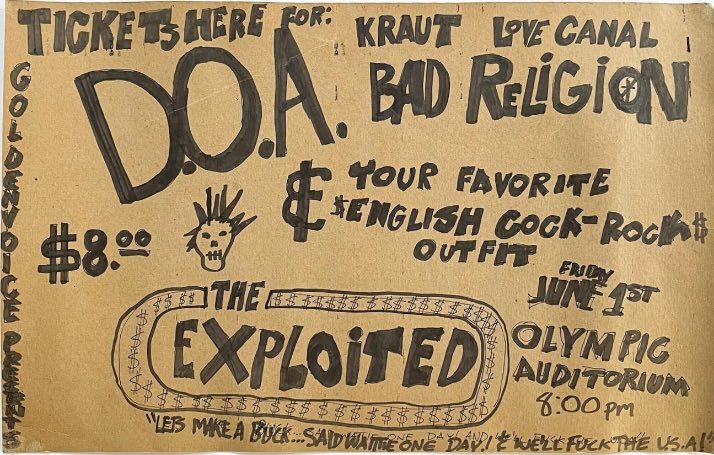 TICKETS HERE FOR:
KRAUT LOVE CANAL
D.O.A. BAD RELIGION
GOLDENVOICE PRESENTS
$8.00
& YOUR FAVORITE
$ENGLISH COCK-ROCK$
OUTFIT
THE
EXPLOITED
FRIDAY
JUNE 1ST
OLYMPIC
AUDITORIUM
8:00 PM
"LETS MAKE A BUCK... SAID WATTIE ONE DAY! & WE'LL FUCK THE U.S.A!"